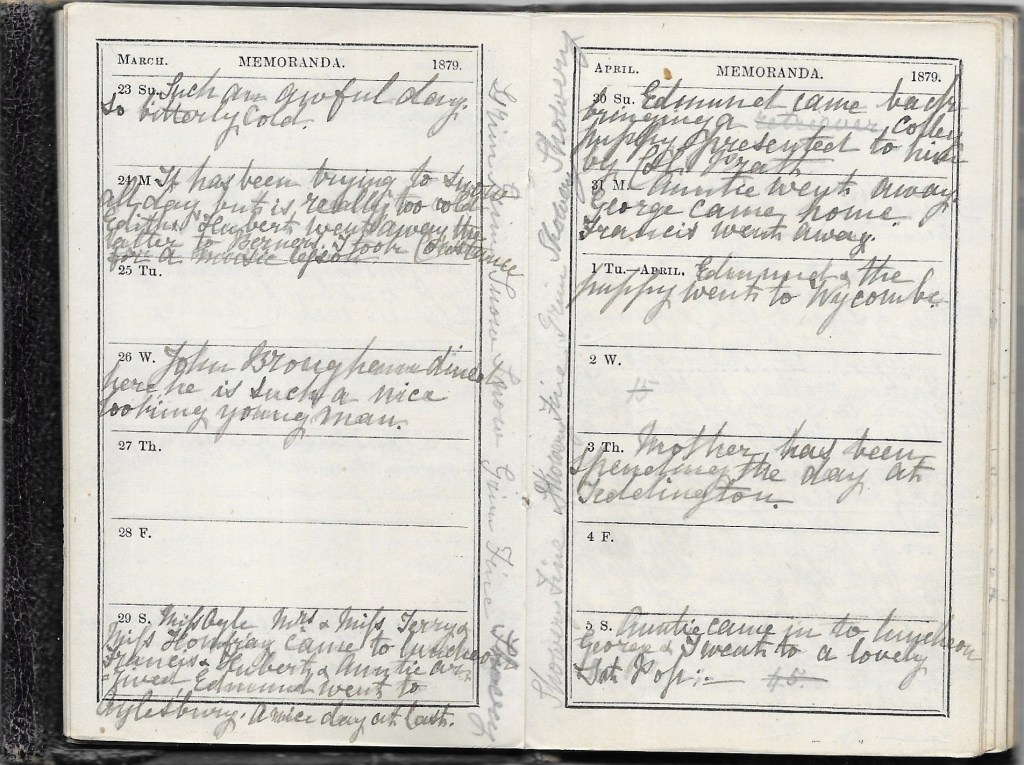 MARCH. MEMORANDA. 1879.
23 Su. Such an awful day.
So bitterly cold.
24 M. It has been trying to snow
all day but is really too cold
Edith & Hubert went away the
latter to Berners. I took Constance
for a music lesson
25 Tu.
26 W. John Brougham dined
here he is such a nice
looking young man.
27 Th.
28 F.
29 S. Miss Ogle Mrs & Miss Terry &
Miss came to luncheon
Francis & Hubert & Auntie ar-
rived Edmund went to
Aylesbury. A nice day at last.
Snow Snow Grim Fine Showery
APRIL. MEMORANDA. 1879.
30 Su. Edmund came back
bringing a retriever colley
puppy presented to him
by Col. Pratt
31 M. Auntie went away
George came home
Francis went away.
1 Tu.—APRIL. Edmund & the
puppy went to Wycombe.
2 W.
3 Th. Mother has been
spending the day at
Teddington.
4 F.
5 S. Auntie came in to luncheon
George & I went to a lovely
Sat. Pop:—
45.
Showery Fine Showery Fine Grim Showery Showery